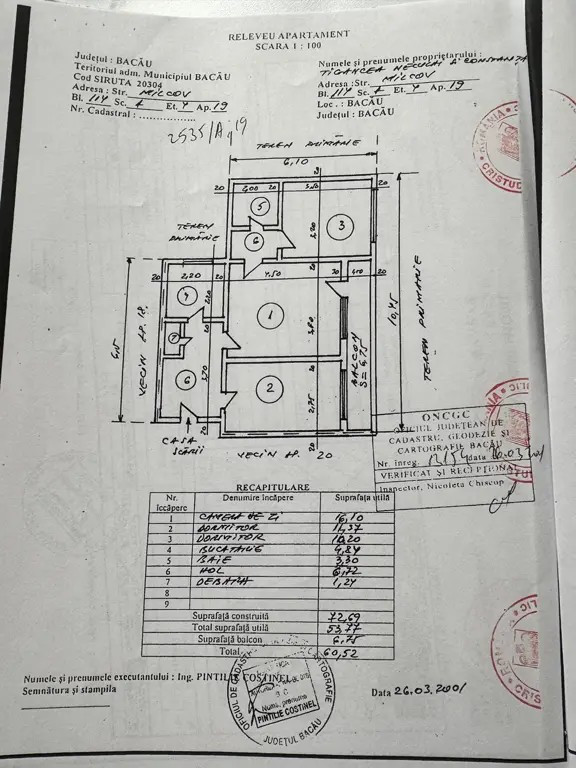 RELEVEU APARTAMENT
SCARA 1 : 100
Județul : BACĂU
Teritoriul adm. Municipiul BACĂU
Cod SIRUTA 20304
Adresa : Str. MILCOV
Bl. 114 Sc. A Et. 4 Ap. 19
Nr. Cadastral : ................
2535/A/19
Numele și prenumele proprietarului :
Adresa : Str. MILCOV
Bl. 114 Sc. A Et. 4 Ap. 19
Loc. : BACĂU
Județul : BACĂU
TEREN PRIMĂRIE
6,10
20 2,00 20 20
5
3
6
TEREN PRIMĂRIE
20 2,20 20 4,50 20
1
2
BALCON
S = 6,75
10,45
TEREN PRIMĂRIE
VECIN AP. 18
6
CASA SCĂRII
VECIN AP. 20
ROMÂNIA
CRISTUD
ONCGC
OFICIUL JUDEȚEAN DE
CADASTRU, GEODEZIE ȘI
CARTOGRAFIE BACĂU
Nr. inreg. data
VERIFICAT ȘI RECEPȚIONAT
Inspector, Nicoleta Chiscop
RECAPITULARE
Nr. încăpere Denumire încăpere Suprafața utilă
1 CAMERA DE ZI 16,10
2 DORMITOR 11,37
3 DORMITOR 10,20
4 BUCATARIE 4,84
5 BAIE 3,30
6 HOL 6,72
7 DEBARA 1,24
8
9
Suprafață construită 72,69
Total suprafață utilă 53,77
Suprafață balcon 6,75
Total 60,52
Numele și prenumele executantului : Ing. PINTILIE COSTINEL
Semnătura și stampila
Data 26.03.2001
OFICIUL DE CADASTRU CARTOGRAFIE
Nume, prenume
PINTILIE COSTINEL
JUDEȚUL BACĂU